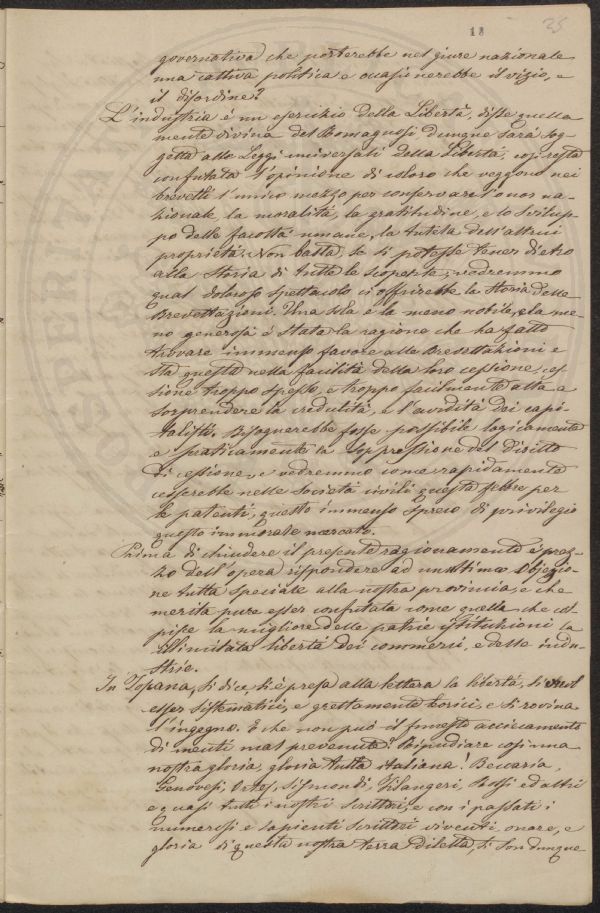 18 25
governativa che porterebbe nel giure nazionale
una cattiva politica e occasionerebbe il vizio, e
il disordine?
L'industria è un esercizio della Libertà, disse quella
mente divina del Romagnosi dunque sarà sog-
getta alle Leggi universali della Libertà, così resta
confutata l'opinione di coloro che veggono nei
brevetti l'unico mezzo per conservare l'onor na-
zionale, la moralità, la gratitudine, e lo svilup-
po delle facoltà umane, la tutela dell'altrui
proprietà. Non basta, se si potesse tener dietro
alla storia di tutte le scoperte, vedremmo
qual doloroso spettacolo ci offrirebbe la storia delle
Brevettazioni. Una sola e la meno nobile, e la me-
no generosa è stata la ragione che ha fatto
trovare immenso favore alle Brevettazioni e
sta questa nella facilità della loro cessione, ces-
sione troppo spesso, e troppo facilmente atta a
sorprendere la credulità, e l'avidità dei capi-
talisti. Bisognerebbe fosse possibile logicamente
e praticamente la soppressione del Diritto
di cessione, e vedremmo come rapidamente
cesserebbe nelle Società civili questa febbre per
le patenti, questo immenso spreco di privilegio
questo immorale mercato.
Prima di chiudere il presente ragionamento è prez-
zo dell'opera rispondere ad un ultima Objezio-
ne tutta speciale alla nostra provincia, e che
merita pure esser confutata come quella che col-
pisce la migliore delle patrie istituzioni la
illimitata libertà dei commerci, e delle indu-
strie.
In Toscana, si dice, si è presa alla lettera la libertà, si vuol
esser sistematici, e grettamente teorici, e si rovina
l'ingegno. E che non può il funesto acciecamento
di menti mal prevenute! Ripudiare così una
nostra gloria, gloria tutta italiana! Beccaria,
Genovesi, Ortes, Sismondi, Filangeri, Rossi ed altri
e quasi tutti i nostri scrittori, e con i passati i
numerosi e sapienti scrittori viventi, onore, e
gloria di questa nostra terra diletta, si son dunque